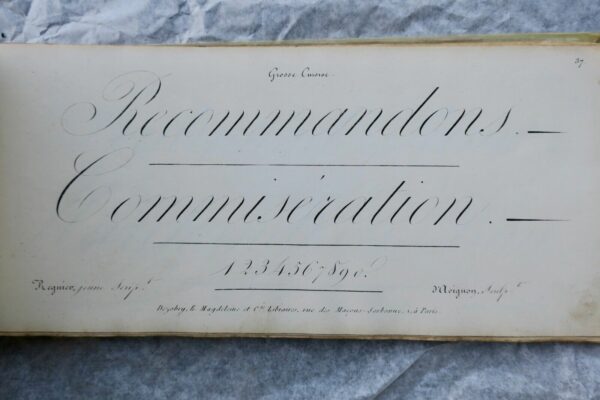 37
Grosse Cursive.
Recommandons.
Commisération.
1234567890.
Regnier, jeune Sculp.t
Moignon, Sculp.t
Dezobry, E. Magdeleine et C.ie Libraires, rue des Maçons-Sorbonne, 1, à Paris.